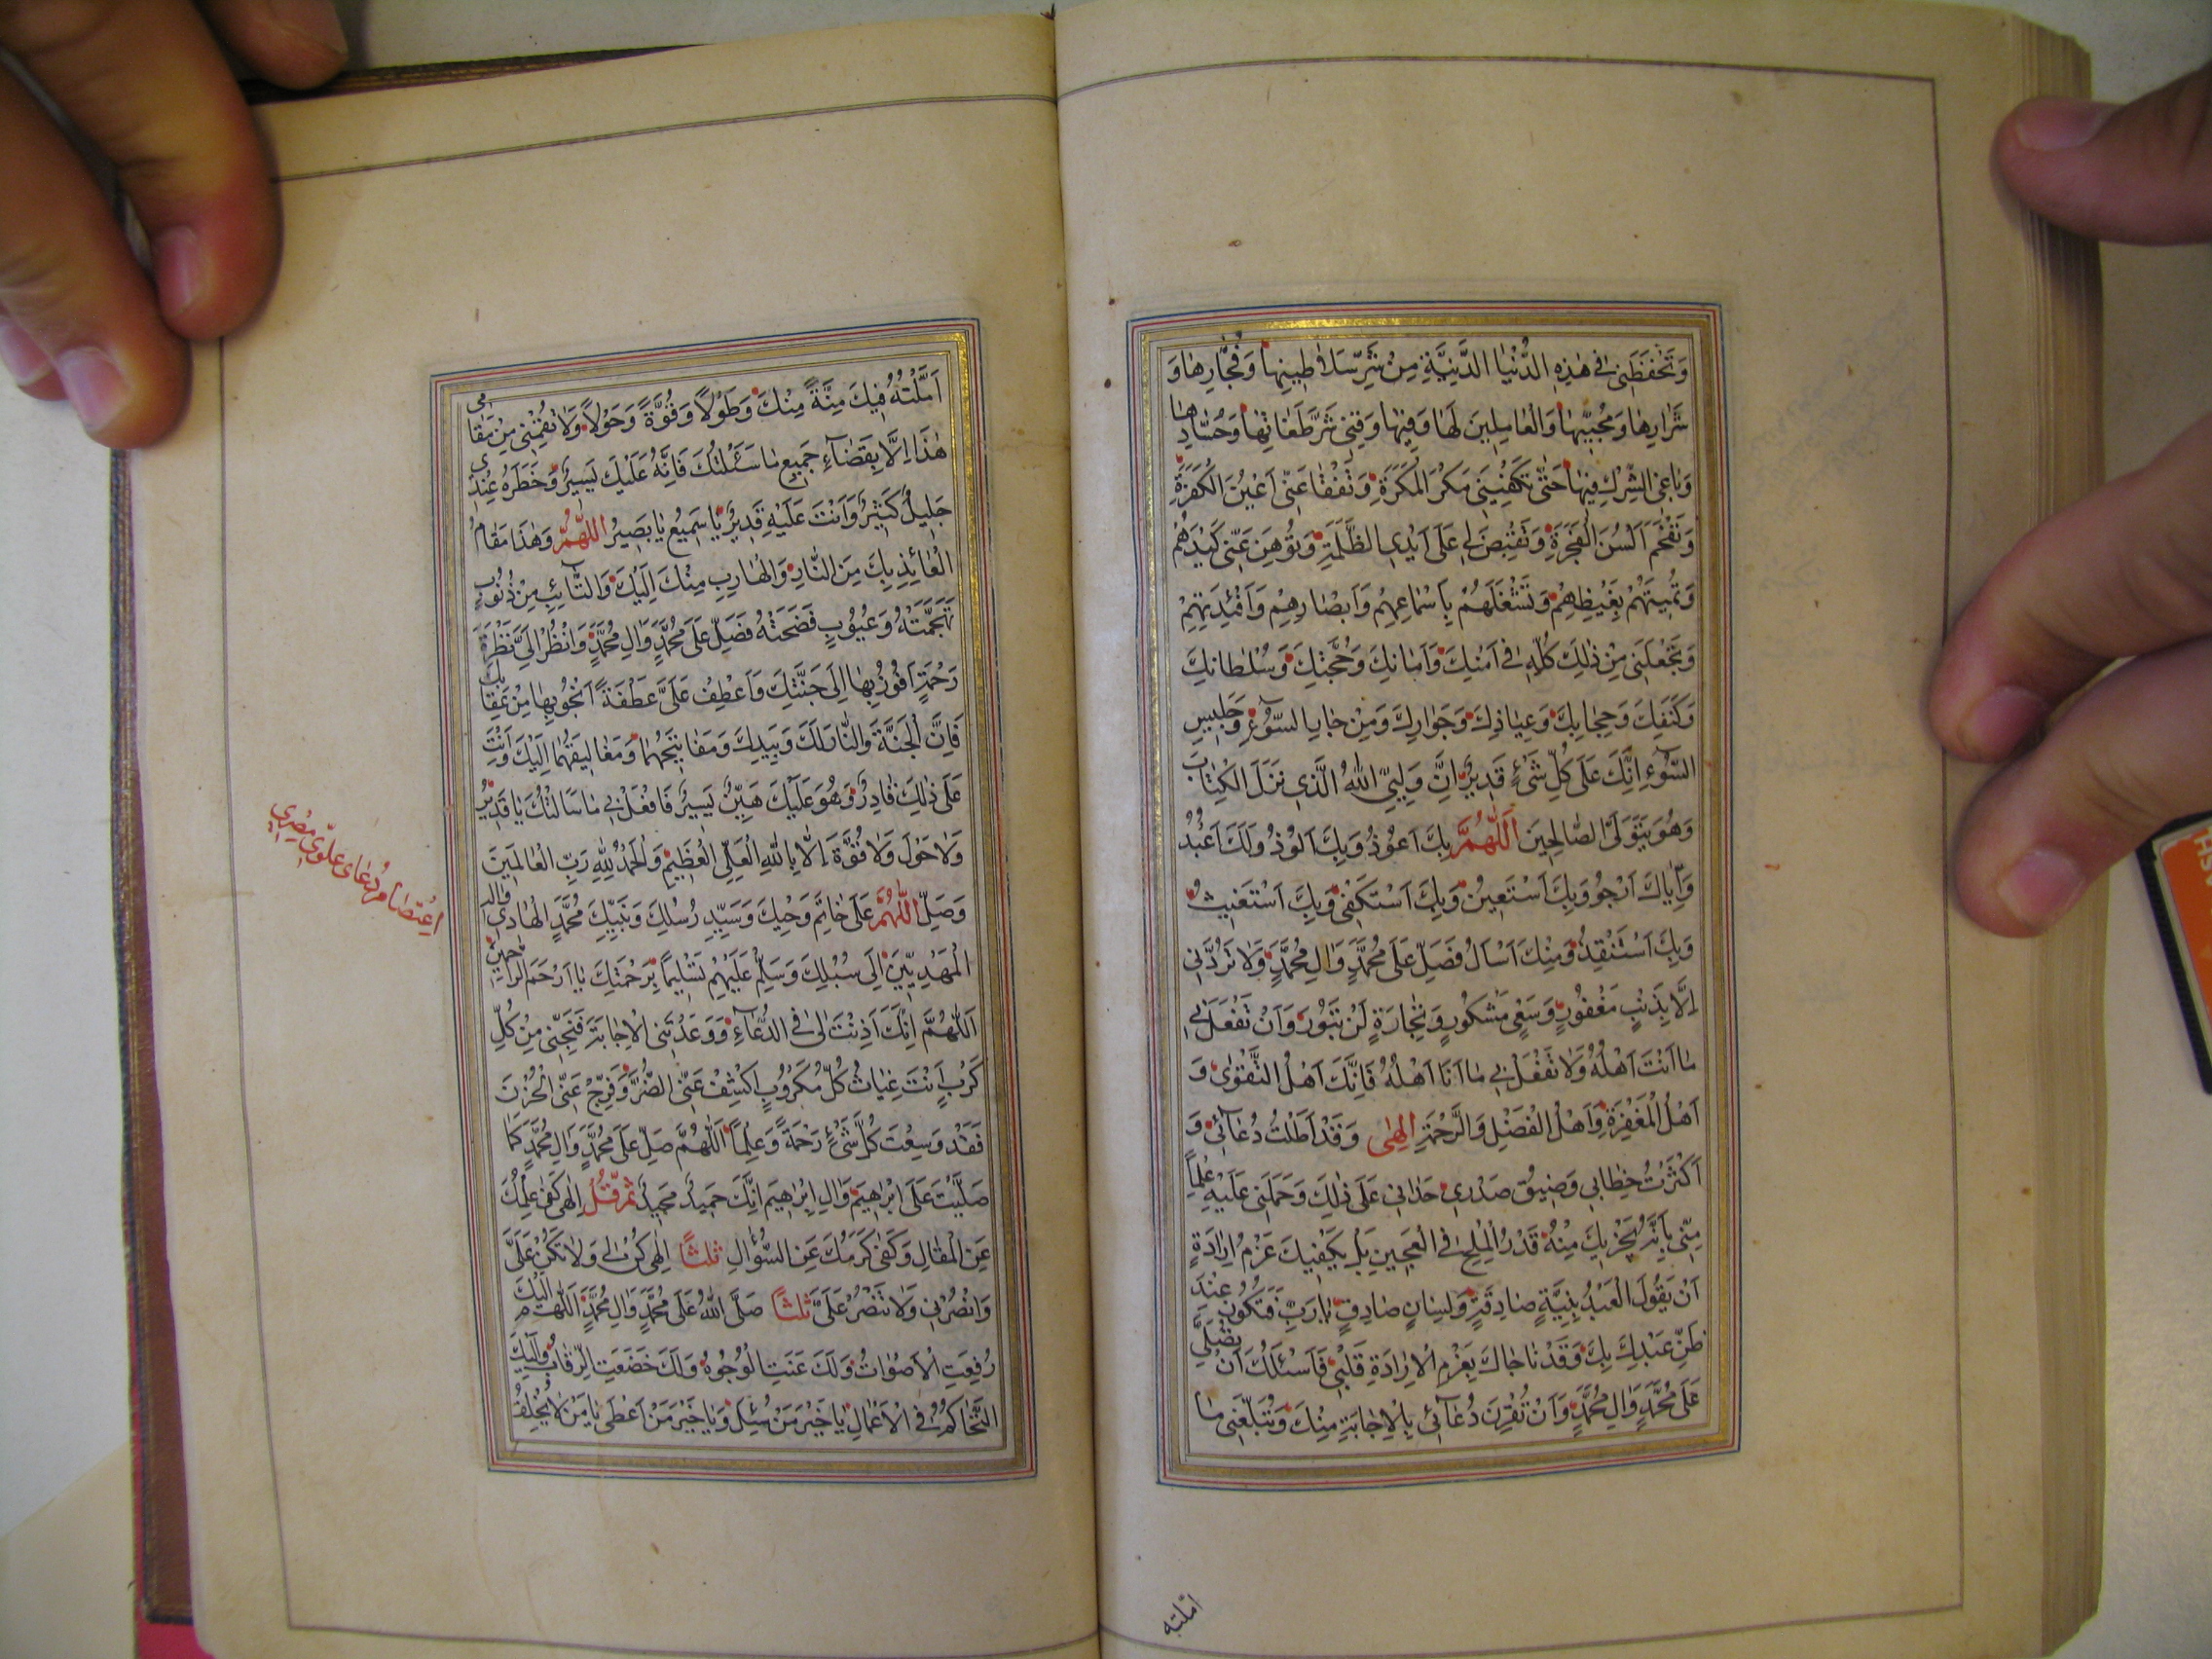 وَتَحْفَظَنِی فی هٰذِهِ الدُّنْیَا الدَّنِیَّةِ مِنْ شَرِّ سَلاٰطِینِهٰا وَفُجّٰارِهٰا وَ
شَرٰارِهٰا وَمُحِبّیهٰا وَالْعٰامِلِینَ لَهٰا وَفِیهٰا وَقِنِی شَرَّ طُغٰاتِهٰا وَحُسّٰادِهٰا
وَبٰاغِی الشِّرْكِ فِیهٰا حَتّٰی تَکْفِیَنِی مَکْرَ الْمَکَرَةِ وَتَفْقَأَ عَنِّی اَعْیُنَ الْکَفَرَةِ
وَتُفْحِمَ اَلْسُنَ الْفَجَرَةِ وَتَقْبِضَ لِی عَلَی اَیْدِی الظَّلَمَةِ وَتُوهِنَ عَنِّی کَیْدَهُمْ
وَتُمِیتَهُمْ بِغَیْظِهِمْ وَتَشْغَلَهُمْ بِاَسْمٰاعِهِمْ وَاَبْصٰارِهِمْ وَاَفْئِدَتِهِمْ
وَتَجْعَلَنِی مِنْ ذٰلِكَ کُلِّهِ فی اَمْنِكَ وَاَمٰانِكَ وَحُجَّتِكَ وَسُلْطٰانِكَ
وَکَنَفِكَ وَحِجٰابِكَ وَعِیٰاذِكَ وَجَوٰارِكَ وَمِنْ جٰارِ السُّوۤءِ وَجَلِیسِ
السُّوۤءِ اِنَّكَ عَلَی کُلِّ شَیْءٍ قَدِیرٌ اِنَّ وَلِیِّیَ اللهُ الَّذِی نَزَّلَ الْکِتٰابَ
وَهُوَ یَتَوَلَّی الصّٰالِحِینَ اَللّٰهُمَّ بِكَ اَعُوذُ وَبِكَ اَلُوذُ وَلَكَ اَعْبُدُ
وَاِیّٰاكَ اَرْجُو وَبِكَ اَسْتَعِینُ وَبِكَ اَسْتَکْفِی وَبِكَ اَسْتَغِیثُ
وَبِكَ اَسْتَنْقِذُ وَمِنْكَ اَسْاَلُ فَصَلِّ عَلَی مُحَمَّدٍ وَاٰلِ مُحَمَّدٍ وَلاٰ تَرُدَّنِی
اِلَّا بِذَنْبٍ مَغْفُورٍ وَسَعْیٍ مَشْکُورٍ وَتِجٰارَةٍ لَنْ تَبُورَ وَاَنْ تَفْعَلَ بِی
مٰا اَنْتَ اَهْلُهُ وَلاٰ تَفْعَلْ بِی مٰا اَنَا اَهْلُهُ فَاِنَّكَ اَهْلُ التَّقْوٰی وَ
اَهْلُ الْمَغْفِرَةِ وَاَهْلُ الْفَضْلِ وَالرَّحْمَةِ اِلٰهِی وَقَدْ اَطَلْتُ دُعٰائِی وَ
اَکْثَرْتُ خِطٰابِی وَضِیقُ صَدْرِی حَدٰانِی عَلَی ذٰلِكَ وَحَمَلَنِی عَلَیْهِ عِلْماً
مِنِّی بِاَنَّهُ یُجْزِیكَ مِنْهُ قَدْرُ الْمِلْحِ فی الْعَجِینِ بَلْ یَکْفِیكَ عَزْمُ اِرٰادَةٍ
اَنْ یَقُولَ الْعَبْدُ بِنِیَّةٍ صٰادِقَةٍ وَلِسٰانٍ صٰادِقٍ یٰا رَبِّ فَتَکُونُ عِنْدَ
ظَنِّ عَبْدِكَ بِكَ وَقَدْ نٰاجٰاكَ بِعَزْمِ الْاِرٰادَةِ قَلْبِی فَاَسْئَلُكَ اَنْ تُصَلِّیَ
عَلَی مُحَمَّدٍ وَاٰلِ مُحَمَّدٍ وَاَنْ تُقْرِنَ دُعٰائِی بِالْاِجٰابَةِ مِنْكَ وَتُبَلِّغَنِی مٰا
املته
اَمَّلْتُهُ فِیكَ مِنَّةً مِنْكَ وَطَوْلاً وَقُوَّةً وَحَوْلاً وَلاٰ تُقِمْنِی مِنْ مَقٰامِی
هٰذَا اِلَّا بِقَضٰاۤءِ جَمِیعِ مٰا سَئَلْتُكَ فَاِنَّهُ عَلَیْكَ یَسِیرٌ وَخَطَرُهُ عِنْدِی
جَلِیلٌ کَثِیرٌ وَاَنْتَ عَلَیْهِ قَدِیرٌ یٰا سَمِیعُ یٰا بَصِیرُ اَللّٰهُمَّ وَهٰذَا مَقٰامُ
الْعٰائِذِ بِكَ مِنَ النّٰارِ وَالْهٰارِبِ مِنْكَ اِلَیْكَ وَالتّٰائِبِ مِنْ ذُنُوبٍ
تَهَجَّمَتْهُ وَعُیُوبٍ فَضَحَتْهُ فَصَلِّ عَلَی مُحَمَّدٍ وَاٰلِ مُحَمَّدٍ وَانْظُرْ اِلَیَّ نَظْرَةَ
رَحْمَةٍ اَفُوزُ بِهٰا اِلَی جَنَّتِكَ وَاَعْطِفْ عَلَیَّ عَطْفَةً اَنْجُو بِهٰا مِنْ عِقٰابِكَ
فَاِنَّ الْجَنَّةَ وَالنّٰارَ لَكَ وَبِیَدِكَ وَمَفٰاتِیحُهُمٰا وَمَغٰالِیقُهُمٰا اِلَیْكَ وَاَنْتَ
عَلَی ذٰلِكَ قٰادِرٌ وَهُوَ عَلَیْكَ هَیِّنٌ یَسِیرٌ فَافْعَلْ بِی مٰا سَاَلْتُكَ یٰا قَدِیرُ
وَلاٰ حَوْلَ وَلاٰ قُوَّةَ اِلَّا بِاللهِ الْعَلِیِّ الْعَظِیمِ وَالْحَمْدُ لِلّٰهِ رَبِّ الْعٰالَمِینَ
وَصَلِّ اللّٰهُمَّ عَلَی خٰاتَمِ وَحْیِكَ وَسَیِّدِ رُسُلِكَ وَنَبِیِّكَ مُحَمَّدٍ الْهٰادِی وَاٰلِهِ
الْمَهْدِیّیِنَ اِلَی سُبُلِكَ وَسَلِّمْ عَلَیْهِمْ تَسْلِیماً بِرَحْمَتِكَ یٰا اَرْحَمَ الرّٰاحِمِینَ
اَللّٰهُمَّ اِنَّكَ اَذِنْتَ لِی فی الدُّعٰاۤءِ وَوَعَدْتَنِی الْاِجٰابَةَ فَنَجِّنِی مِنْ کُلِّ
کَرْبٍ اَنْتَ غِیٰاثُ کُلِّ مَکْرُوبٍ اِکْشِفْ عَنِّی الضُّرَّ وَفَرِّجْ عَنِّی الْحُزْنَ
فَقَدْ وَسِعْتَ کُلَّ شَیْءٍ رَحْمَةً وَعِلْماً اَللّٰهُمَّ صَلِّ عَلَی مُحَمَّدٍ وَاٰلِ مُحَمَّدٍ کَمٰا
صَلَّیْتَ عَلَی اِبْرٰاهِیمَ وَاٰلِ اِبْرٰاهِیمَ اِنَّكَ حَمِیدٌ مَجِیدٌ ثُمَّ قُلْ اِلٰهِی کَفٰی عِلْمُكَ
عَنِ الْمَقٰالِ وَکَفٰی کَرَمُكَ عَنِ السُّؤٰالِ ثلثاً اِلٰهِی کُنْ لِی وَلاٰ تَکُنْ عَلَیَّ
وَانْصُرْنِی وَلاٰ تَنْصُرْ عَلَیَّ ثلثاً صَلَّی اللهُ عَلَی مُحَمَّدٍ وَاٰلِ مُحَمَّدٍ اَللّٰهُمَّ اِلَیْكَ
رُفِعَتِ الْاَصْوٰاتُ وَلَكَ عَنَتِ الْوُجُوهُ وَلَكَ خَضَعَتِ الرِّقٰابُ وَاِلَیْكَ
التَّحٰاکُمُ فی الْاَعْمٰالِ یٰا خَیْرَ مَنْ سُئِلَ وَیٰا خَیْرَ مَنْ اَعْطَی یٰا مَنْ لاٰ یُخْلِفُ
اعتصام دعای علوی مصری